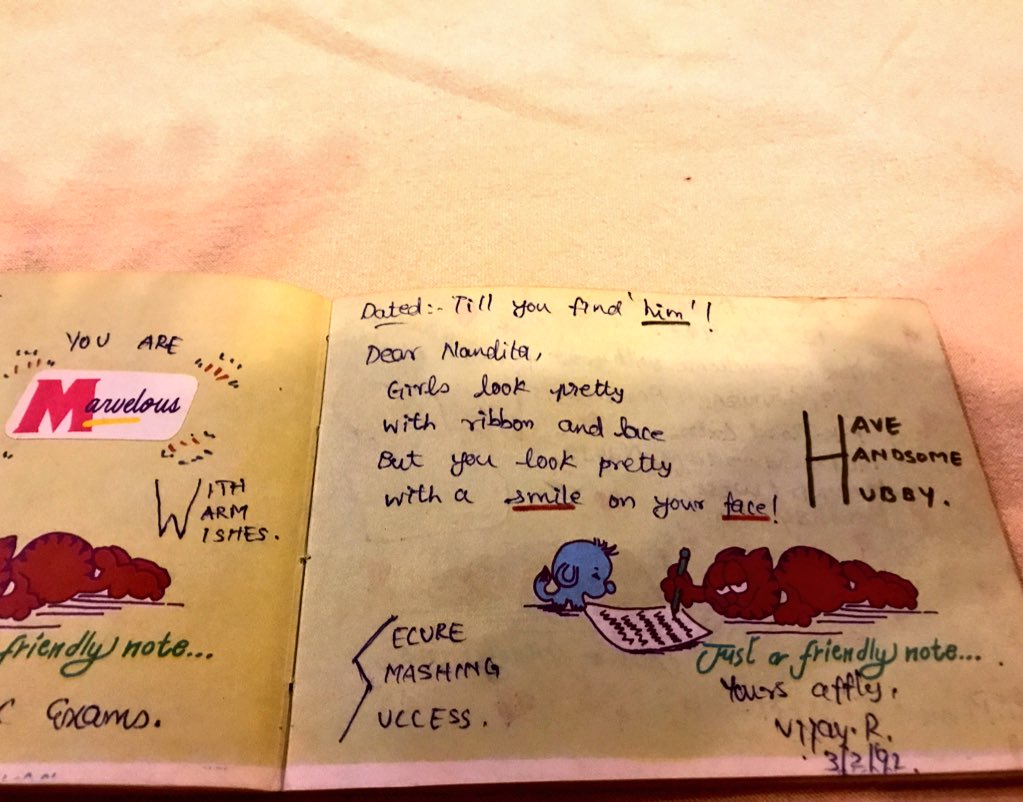 YOU ARE
Marvelous
WITH
WARM
WISHES.
friendly note...
Exams.
Dated:- Till you find 'him'!
Dear Nandita,
Girls look pretty
with ribbon and lace
But you look pretty
with a smile on your face!
HAVE
HANDSOME
HUBBY.
SECURE
SMASHING
SUCCESS.
Just a friendly note....
Yours affly,
Vijay. R.
3/2/92.